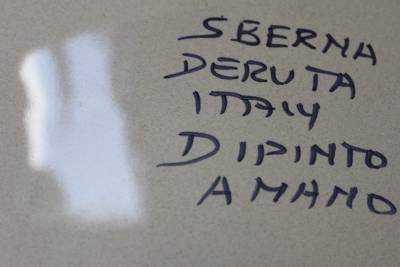 SBERNA
DERUTA
ITALY
DIPINTO
A MANO